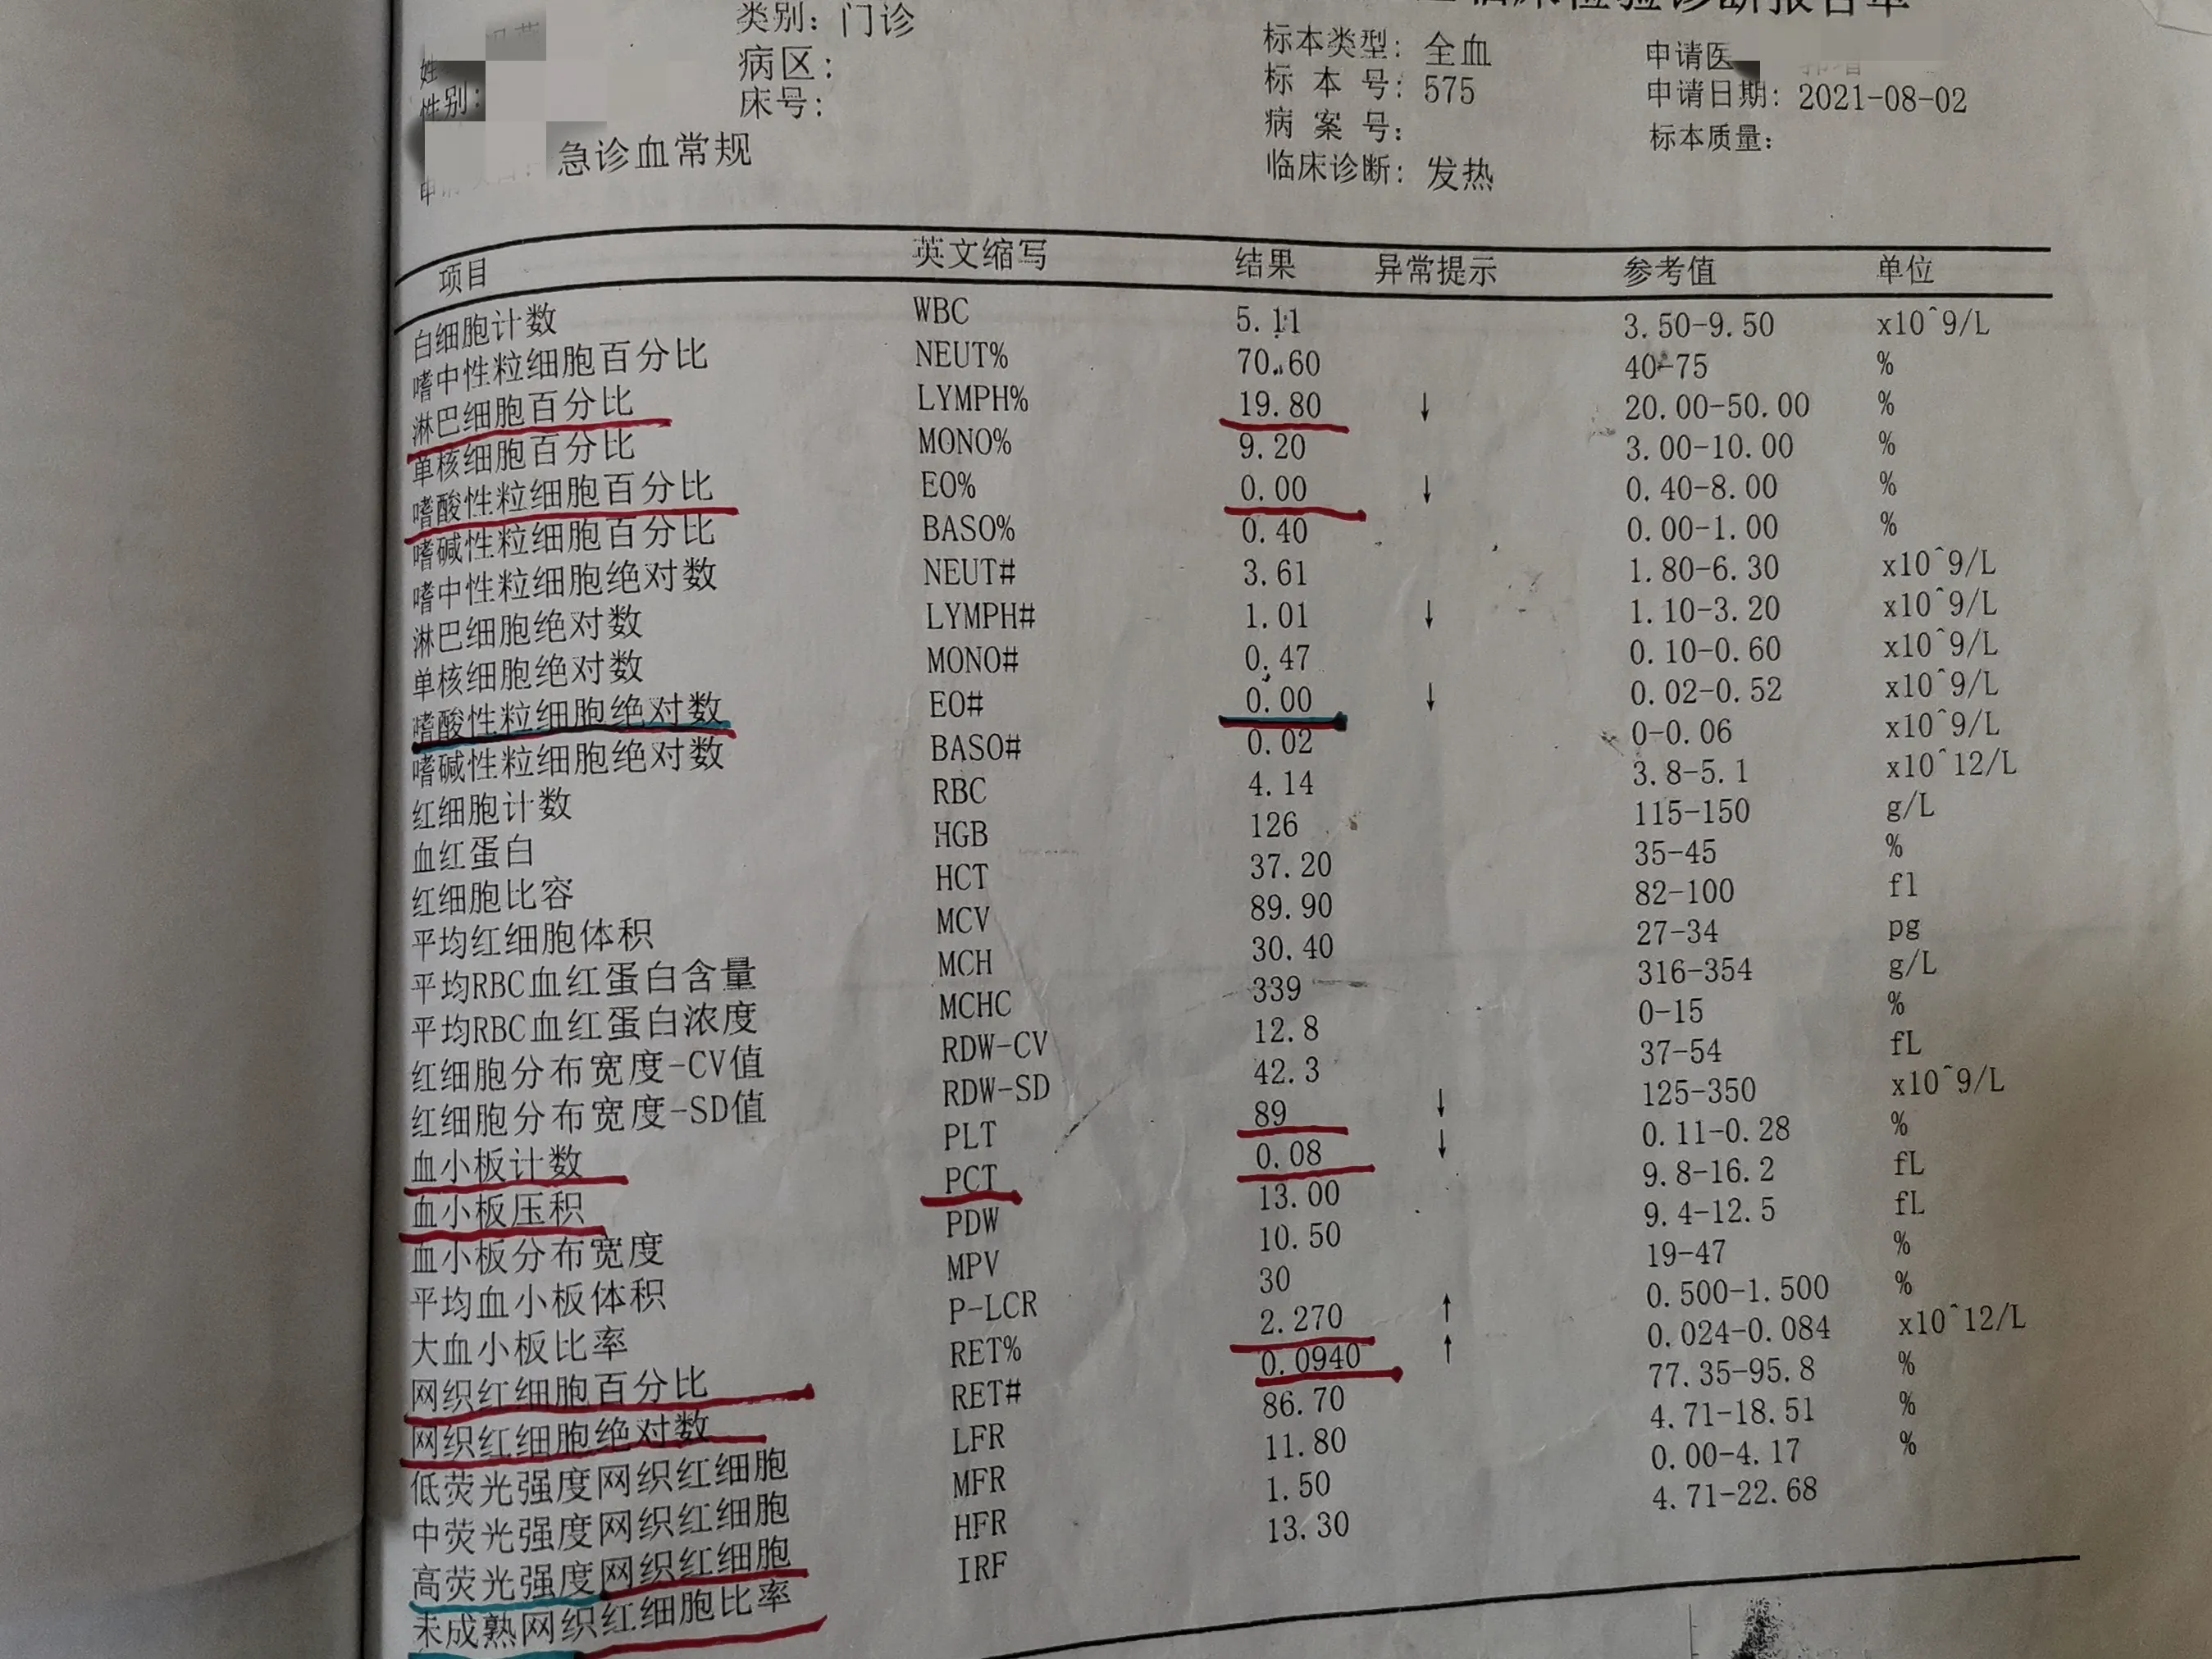 临床检验诊断报告单
类别: 门诊 标本类型: 全血 申请医
姓
病区: 标 本 号: 575 申请日期: 2021-08-02
性别:
床号: 病 案 号: 标本质量:
急诊血常规 临床诊断: 发热
项目 英文缩写 结果 异常提示 参考值 单位
白细胞计数 WBC 5.11 3.50-9.50 x10^9/L
嗜中性粒细胞百分比 NEUT% 70.60 40-75 %
淋巴细胞百分比 LYMPH% 19.80 ↓ 20.00-50.00 %
单核细胞百分比 MONO% 9.20 3.00-10.00 %
嗜酸性粒细胞百分比 EO% 0.00 ↓ 0.40-8.00 %
嗜碱性粒细胞百分比 BASO% 0.40 0.00-1.00 %
嗜中性粒细胞绝对数 NEUT# 3.61 1.80-6.30 x10^9/L
淋巴细胞绝对数 LYMPH# 1.01 ↓ 1.10-3.20 x10^9/L
单核细胞绝对数 MONO# 0.47 0.10-0.60 x10^9/L
嗜酸性粒细胞绝对数 EO# 0.00 ↓ 0.02-0.52 x10^9/L
嗜碱性粒细胞绝对数 BASO# 0.02 0-0.06 x10^9/L
红细胞计数 RBC 4.14 3.8-5.1 x10^12/L
血红蛋白 HGB 126 115-150 g/L
红细胞比容 HCT 37.20 35-45 %
平均红细胞体积 MCV 89.90 82-100 fl
平均RBC血红蛋白含量 MCH 30.40 27-34 pg
平均RBC血红蛋白浓度 MCHC 339 316-354 g/L
红细胞分布宽度-CV值 RDW-CV 12.8 0-15 %
红细胞分布宽度-SD值 RDW-SD 42.3 37-54 fL
血小板计数 PLT 89 ↓ 125-350 x10^9/L
血小板压积 PCT 0.08 ↓ 0.11-0.28 %
血小板分布宽度 PDW 13.00 9.8-16.2 fL
平均血小板体积 MPV 10.50 9.4-12.5 fL
大血小板比率 P-LCR 30 19-47 %
网织红细胞百分比 RET% 2.270 ↑ 0.500-1.500 %
网织红细胞绝对数 RET# 0.0940 ↑ 0.024-0.084 x10^12/L
低荧光强度网织红细胞 LFR 86.70 77.35-95.8 %
中荧光强度网织红细胞 MFR 11.80 4.71-18.51 %
高荧光强度网织红细胞 HFR 1.50 0.00-4.17 %
未成熟网织红细胞比率 IRF 13.30 4.71-22.68